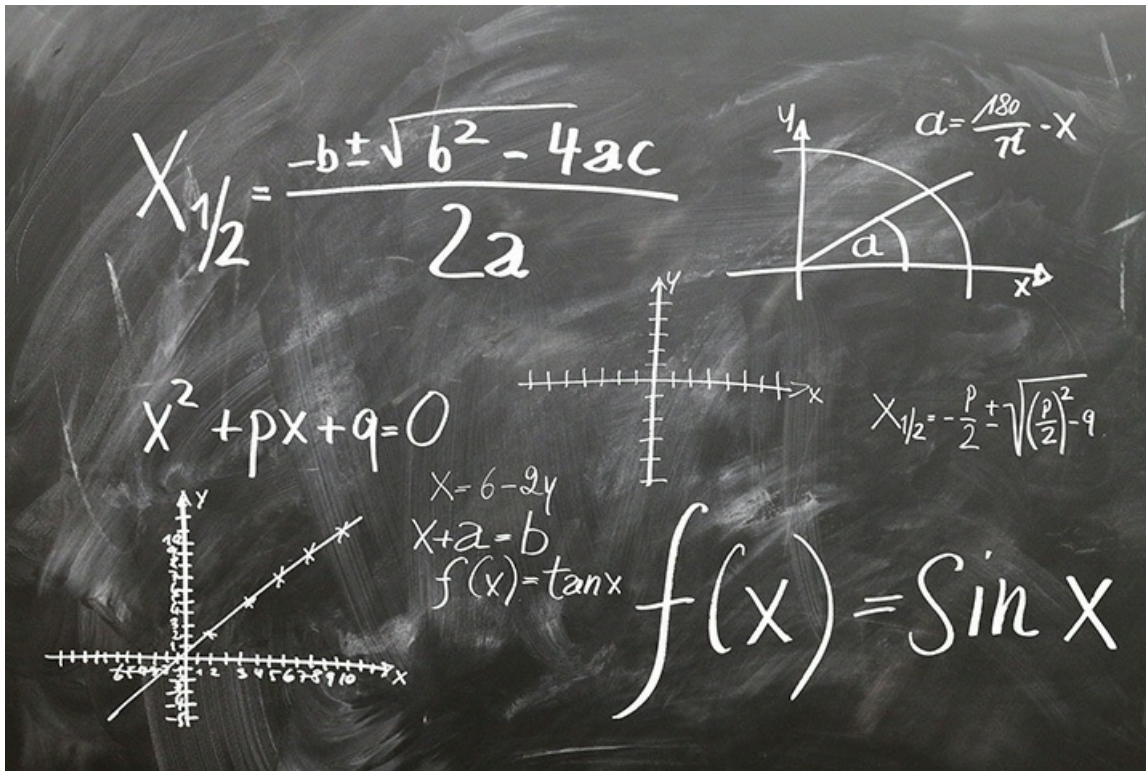 X1/2 = (-b ± √(b² - 4ac)) / 2a
y
a = 180/π - x
a
x
y
x
x² + px + q = 0
X1/2 = -p/2 ± √((p/2)² - q)
x = 6 - 2y
x + a = b
f(x) = tan x
f(x) = sin x
y
1 2 3 4 5 6 7 8 9 10 x